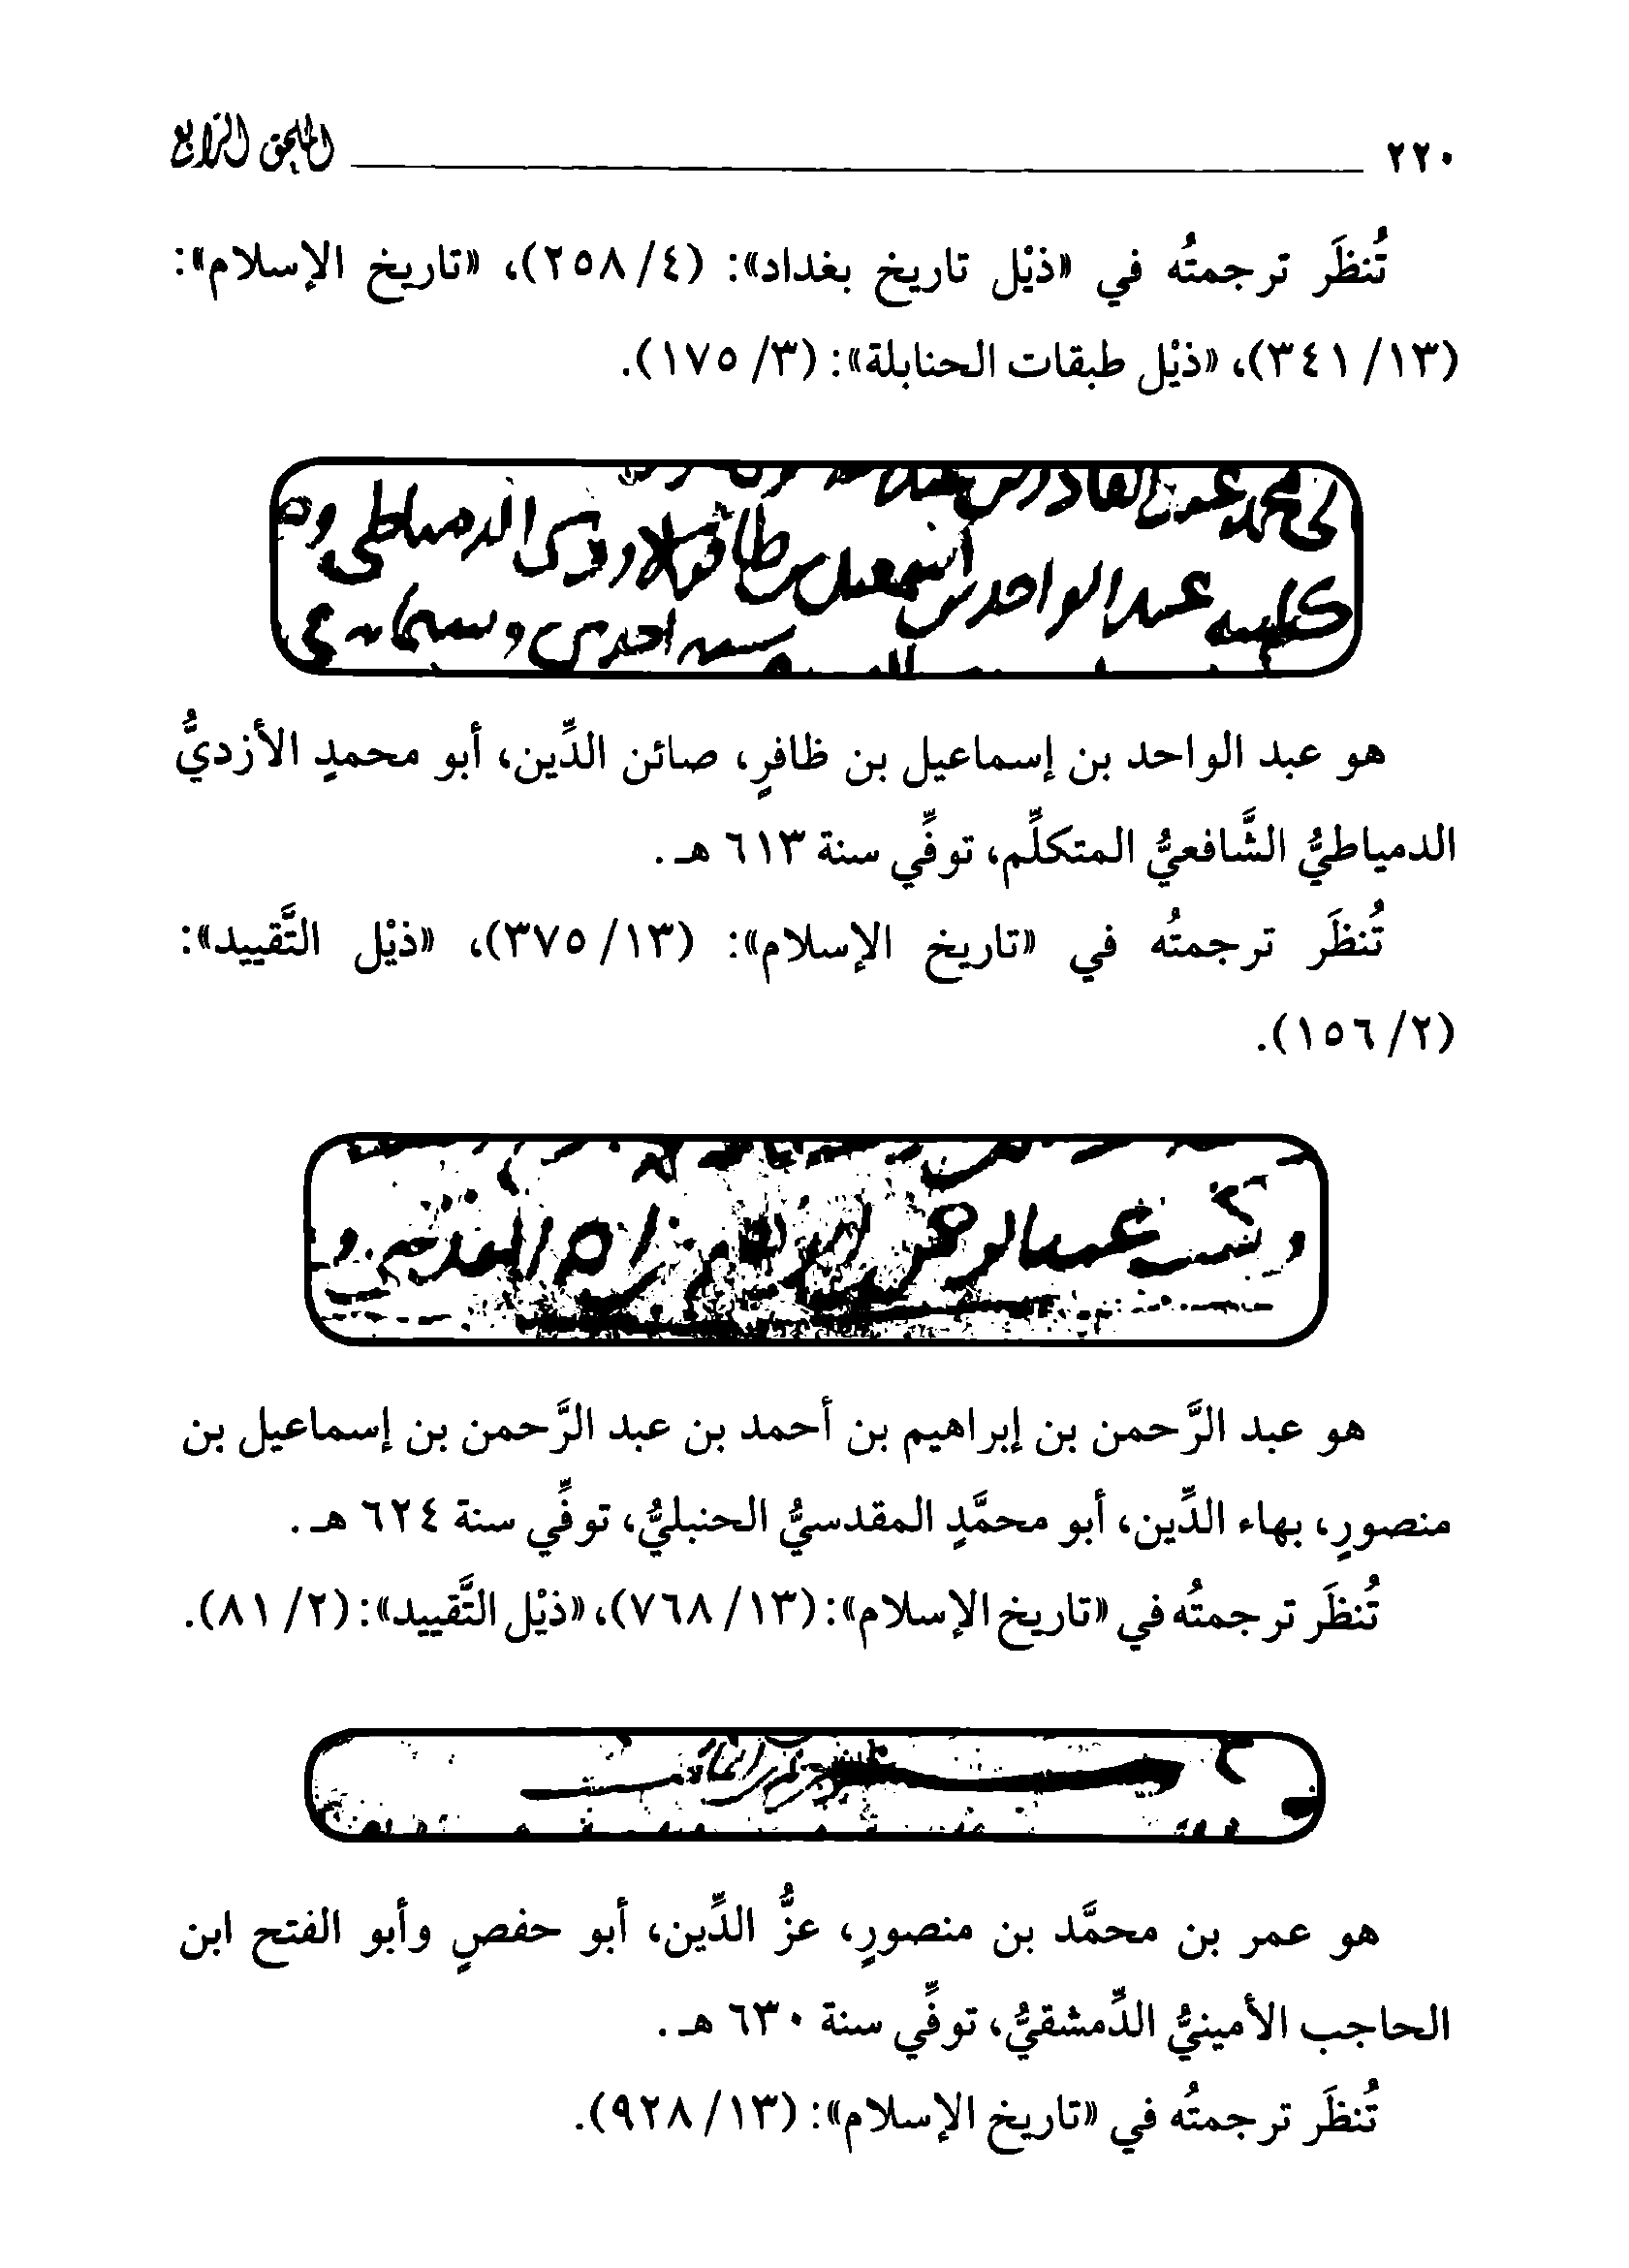 ٢٢٠ الملحق الرابع
تُنظَر ترجمتُه في «ذيْل تاريخ بغداد»: (٤/ ٢٥٨)، «تاريخ الإسلام»:
(١٣/ ٣٤١)، «ذيْل طبقات الحنابلة»: (٣/ ١٧٥).
عبد الواحد بن اسمعيل بن ظافر
هو عبد الواحد بن إسماعيل بن ظافرٍ، صائن الدِّين، أبو محمدٍ الأزديُّ
الدمياطيُّ الشَّافعيُّ المتكلِّم، توفِّي سنة ٦١٣ هـ.
تُنظَر ترجمتُه في «تاريخ الإسلام»: (١٣/ ٣٧٥)، «ذيْل التَّقييد»:
(٢/ ١٥٦).
وكتب عبد الرحمن بن ابراهيم المقدسي
هو عبد الرَّحمن بن إبراهيم بن أحمد بن عبد الرَّحمن بن إسماعيل بن
منصورٍ، بهاء الدِّين، أبو محمَّدٍ المقدسيُّ الحنبليُّ، توفِّي سنة ٦٢٤ هـ.
تُنظَر ترجمتُه في «تاريخ الإسلام»: (١٣/ ٧٦٨)، «ذيْل التَّقييد»: (٢/ ٨١).
هو عمر بن محمَّد بن منصورٍ، عزُّ الدِّين، أبو حفصٍ وأبو الفتح ابن
الحاجب الأمينيُّ الدِّمشقيُّ، توفِّي سنة ٦٣٠ هـ.
تُنظَر ترجمتُه في «تاريخ الإسلام»: (١٣/ ٩٢٨).